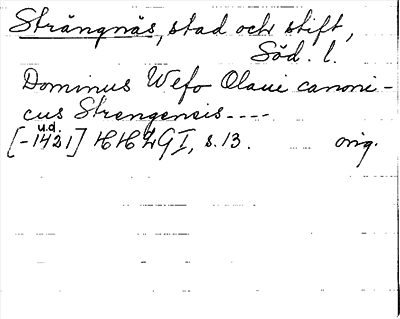 Strängnäs, stad och stift,
Söd. l.
Dominus Wefo Olaui canoni-
cus Strengensis ----
u.d.
[-1421] HH I, s. 13. orig.